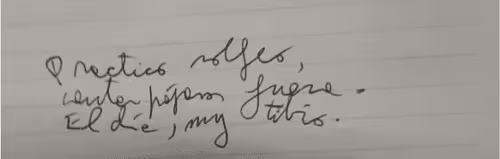 Practico solfeo,
cantan pájaros fuera.
El día, muy tibio.